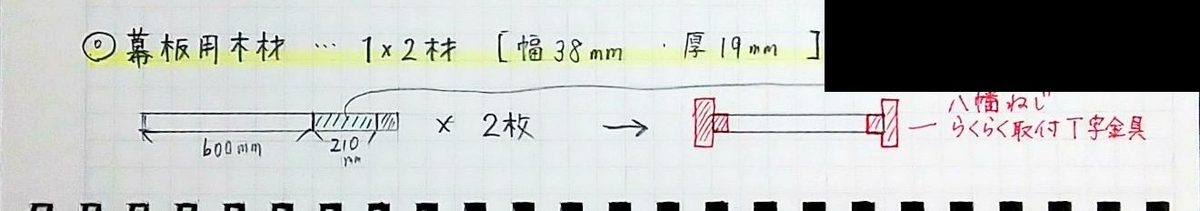 ◎幕板用木材 … 1×2材 [幅38mm ・ 厚19mm]
600mm
210mm
× 2枚 →
八幡ねじ
らくらく取付T字金具